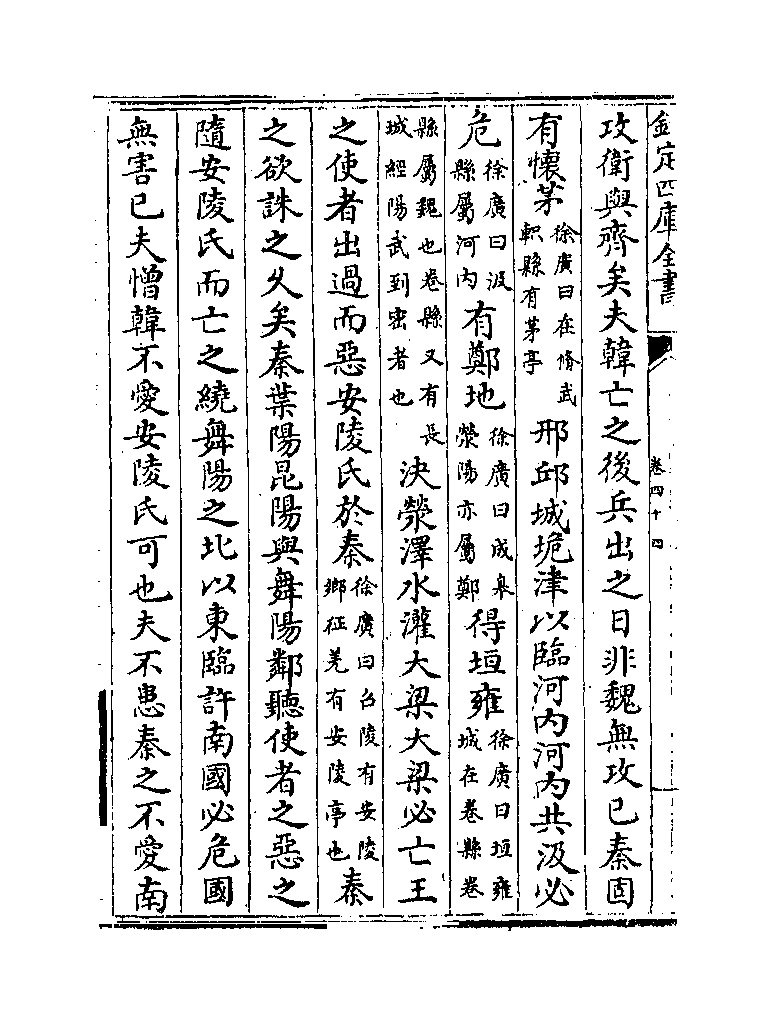 欽定四庫全書
卷四十四
攻衛與齊矣夫韓亡之後兵出之日非魏無攻已秦固
有懷茅徐廣曰在脩武軹縣有茅亭邢邱城垝津以臨河內河內共汲必
危徐廣曰汲縣屬河內有鄭地徐廣曰成皋滎陽亦屬鄭得垣雍徐廣曰垣雍城在卷縣卷
縣屬魏也卷縣又有長城經陽武到密者也決滎澤水灌大梁大梁必亡王
之使者出過而惡安陵氏於秦徐廣曰召陵有安陵鄉征羌有安陵亭也秦
之欲誅之乆矣秦葉陽昆陽與舞陽鄰聽使者之惡之
隨安陵氏而亡之繞舞陽之北以東臨許南國必危國
無害已夫憎韓不愛安陵氏可也夫不患秦之不愛南